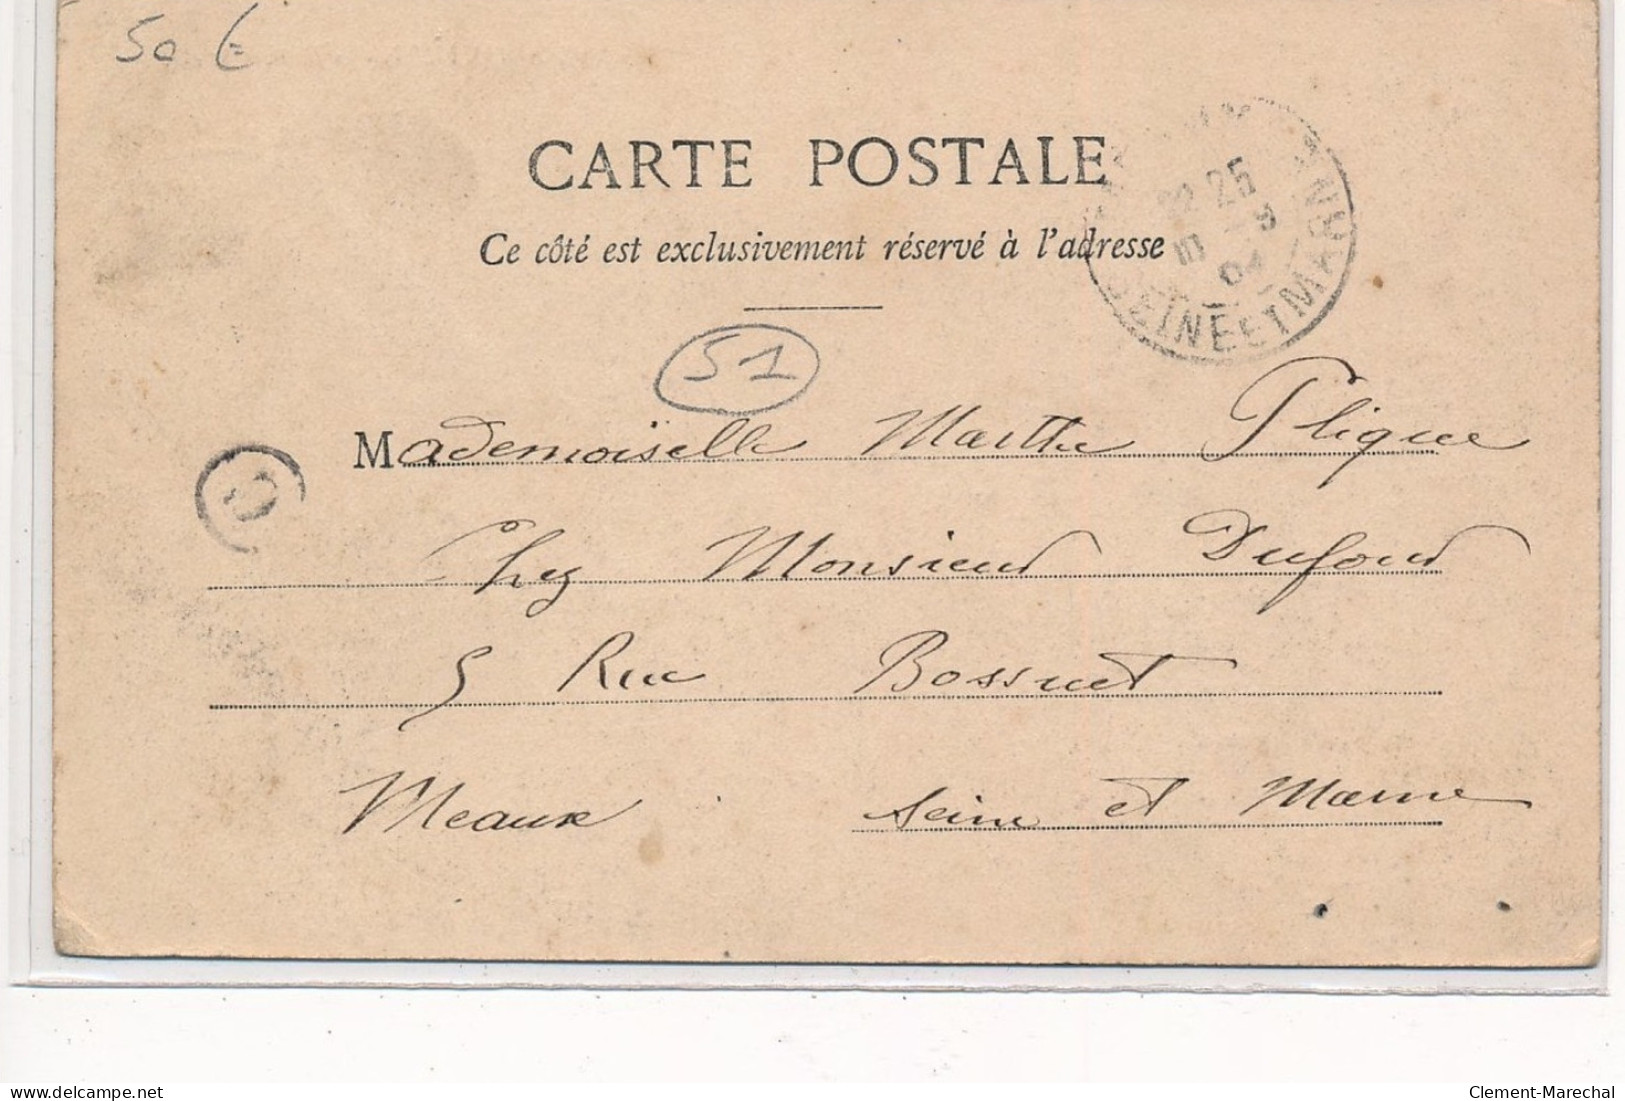 50 €
CARTE POSTALE
Ce côté est exclusivement réservé à l'adresse
22 25
8 - 3
04
SEINE ET MARNE
51
Mademoiselle Marthe Plique
Chez Monsieur Dufour
5 Rue Bossuet
Meaux Seine et Marne
delcampe.net
Clement-Marechal